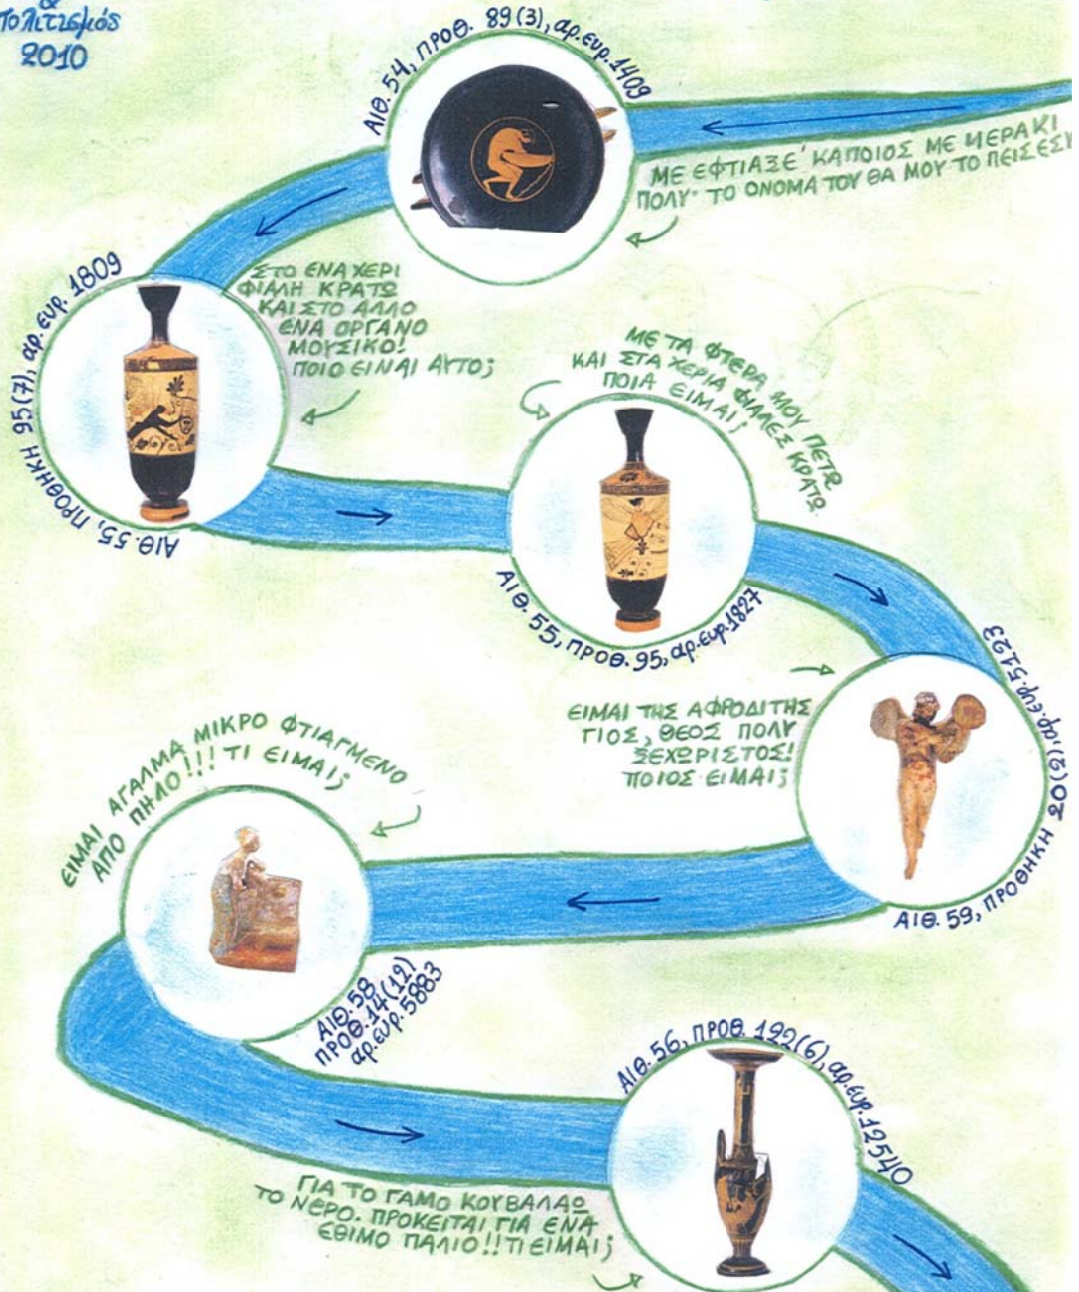 &
Πολιτισμός
2010
ΑΙΘ. 54, ΠΡΟΘ. 89(3), αρ.ευρ.1409
ΜΕ ΕΦΤΙΑΞΕ ΚΑΠΟΙΟΣ ΜΕ ΜΕΡΑΚΙ
ΠΟΛΥ· ΤΟ ΟΝΟΜΑ ΤΟΥ ΘΑ ΜΟΥ ΤΟ ΠΕΙΣ ΕΣΥ
ΠΡΟΘΗΚΗ 95(7), αρ. ευρ. 1809
ΑΙΘ. 55,
ΣΤΟ ΕΝΑ ΧΕΡΙ
ΦΙΑΛΗ ΚΡΑΤΩ
ΚΑΙ ΣΤΟ ΑΛΛΟ
ΕΝΑ ΟΡΓΑΝΟ
ΜΟΥΣΙΚΟ!
ΠΟΙΟ ΕΙΝΑΙ ΑΥΤΟ;
ΜΕ ΤΑ ΦΤΕΡΑ ΜΟΥ ΠΕΤΩ
ΚΑΙ ΣΤΑ ΧΕΡΙΑ ΦΙΑΛΕΣ ΚΡΑΤΩ.
ΠΟΙΑ ΕΙΜΑΙ;
ΑΙΘ. 55, ΠΡΟΘ. 95, αρ.ευρ.1827
ΕΙΜΑΙ ΤΗΣ ΑΦΡΟΔΙΤΗΣ
ΓΙΟΣ, ΘΕΟΣ ΠΟΛΥ
ΞΕΧΩΡΙΣΤΟΣ!
ΠΟΙΟΣ ΕΙΜΑΙ;
ΑΙΘ. 59, ΠΡΟΘΗΚΗ 20(2), αρ.ευρ.5123
ΕΙΜΑΙ ΑΓΑΛΜΑ ΜΙΚΡΟ ΦΤΙΑΓΜΕΝΟ
ΑΠΟ ΠΗΛΟ!!! ΤΙ ΕΙΜΑΙ;
ΑΙΘ. 58
ΠΡΟΘ. 14(12)
αρ.ευρ. 5883
ΑΙΘ. 56, ΠΡΟΘ. 122(6), αρ.ευρ.12540
ΓΙΑ ΤΟ ΓΑΜΟ ΚΟΥΒΑΛΑΩ
ΤΟ ΝΕΡΟ. ΠΡΟΚΕΙΤΑΙ ΓΙΑ ΕΝΑ
ΕΘΙΜΟ ΠΑΛΙΟ!! ΤΙ ΕΙΜΑΙ;